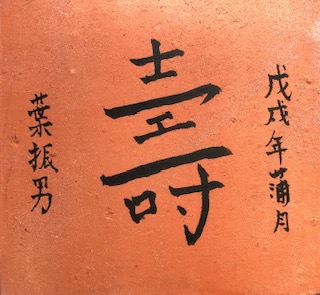 戊戌年蒲月
壽
葉振男